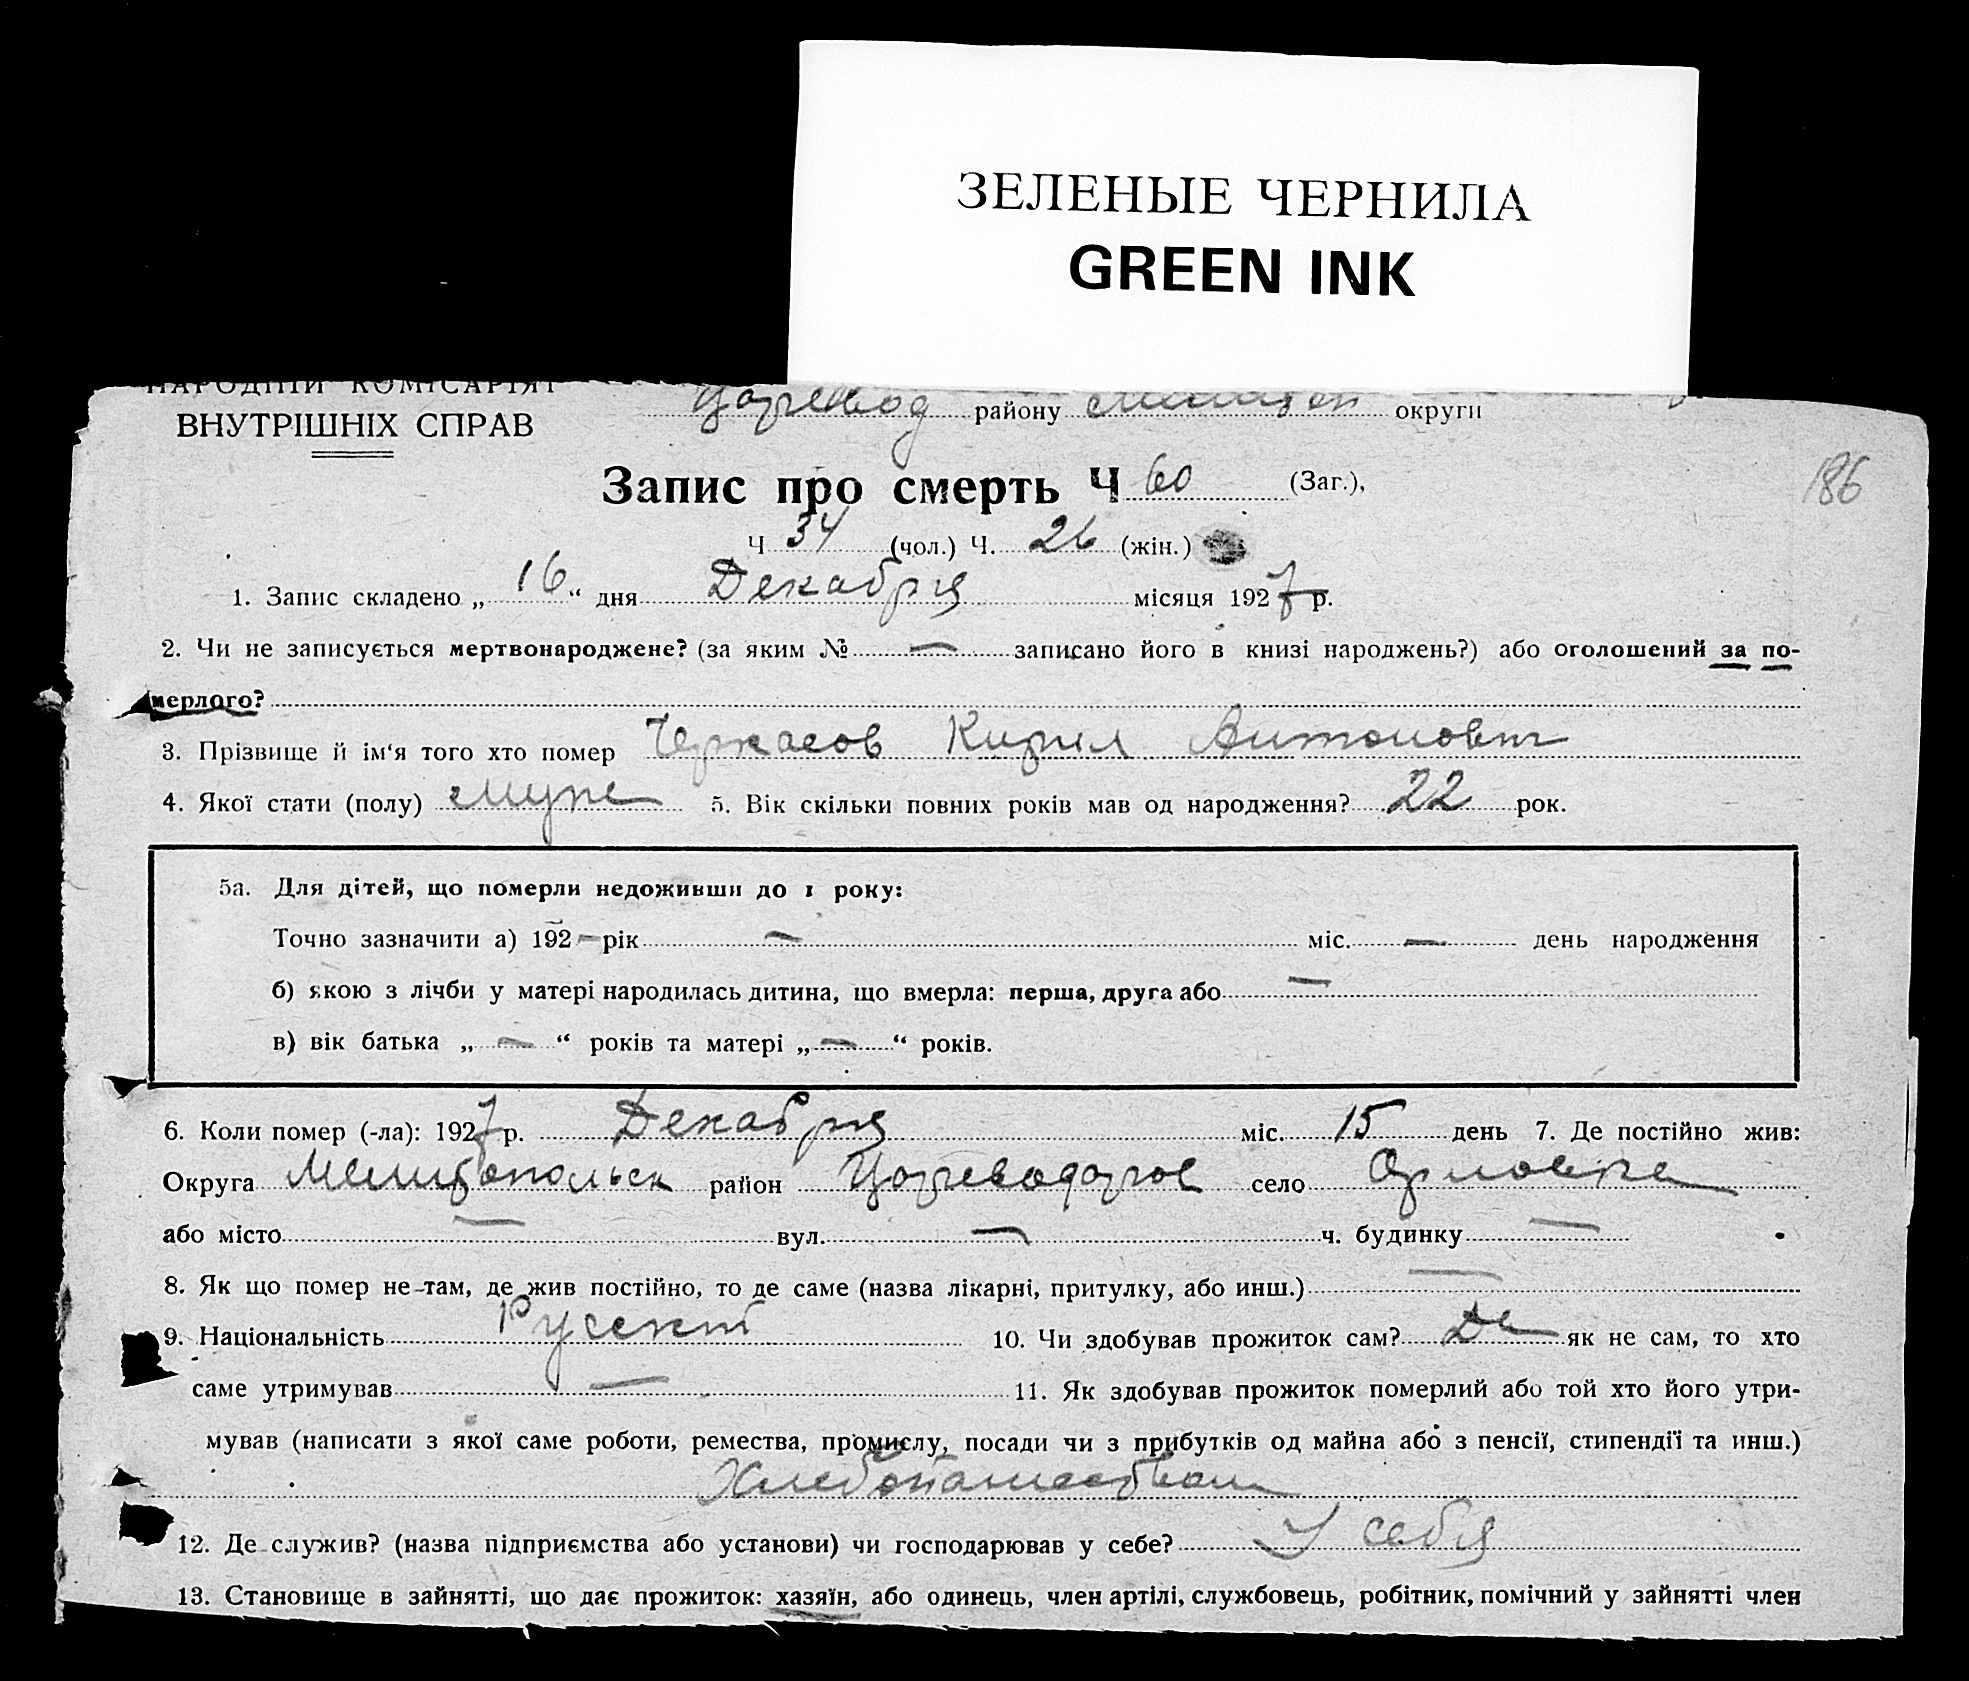 ЗЕЛЕНЫЕ ЧЕРНИЛА
GREEN INK
НАРОДНІЙ КОМІСАРІЯТ
ВНУТРІШНІХ СПРАВ
Царевод району Мелитоп округи
186
Запис про смерть Ч 60 (Заг.),
Ч 34 (чол.) Ч. 26 (жін.)
1. Запис складено „ 16 “ дня Декабря місяця 1927 р.
2. Чи не записується мертвонароджене? (за яким № — записано його в книзі народжень?) або оголошений за по-
мерлого?
3. Прізвище й ім‘я того хто помер Черкасов Кирил Антонович
4. Якої стати (полу) Муже 5. Вік скільки повних років мав од народження? 22 рок.
5а. Для дітей, що померли недоживши до 1 року:
Точно зазначити а) 192 — рік — міс. — день народження
б) якою з лічби у матері народилась дитина, що вмерла: перша, друга або —
в) вік батька „ — “ років та матері „ — “ років.
6. Коли помер (-ла): 1927 р. Декабря міс. 15 день 7. Де постійно жив:
Округа Мелитопольск район Цареводаров село Орловке
або місто — вул. — ч. будинку —
8. Як що помер не там, де жив постійно, то де саме (назва лікарні, притулку, або инш.) —
9. Національність Русский 10. Чи здобував прожиток сам? Да як не сам, то хто
саме утримував — 11. Як здобував прожиток померлий або той хто його утри-
мував (написати з якої саме роботи, ремества, промислу, посади чи з прибутків од майна або з пенсії, стипендії та инш.)
Хлебопашеством
12. Де служив? (назва підприємства або установи) чи господарював у себе? У себя
13. Становище в зайнятті, що дає прожиток: хазяїн, або одинець, член артілі, службовець, робітник, помічний у зайнятті член